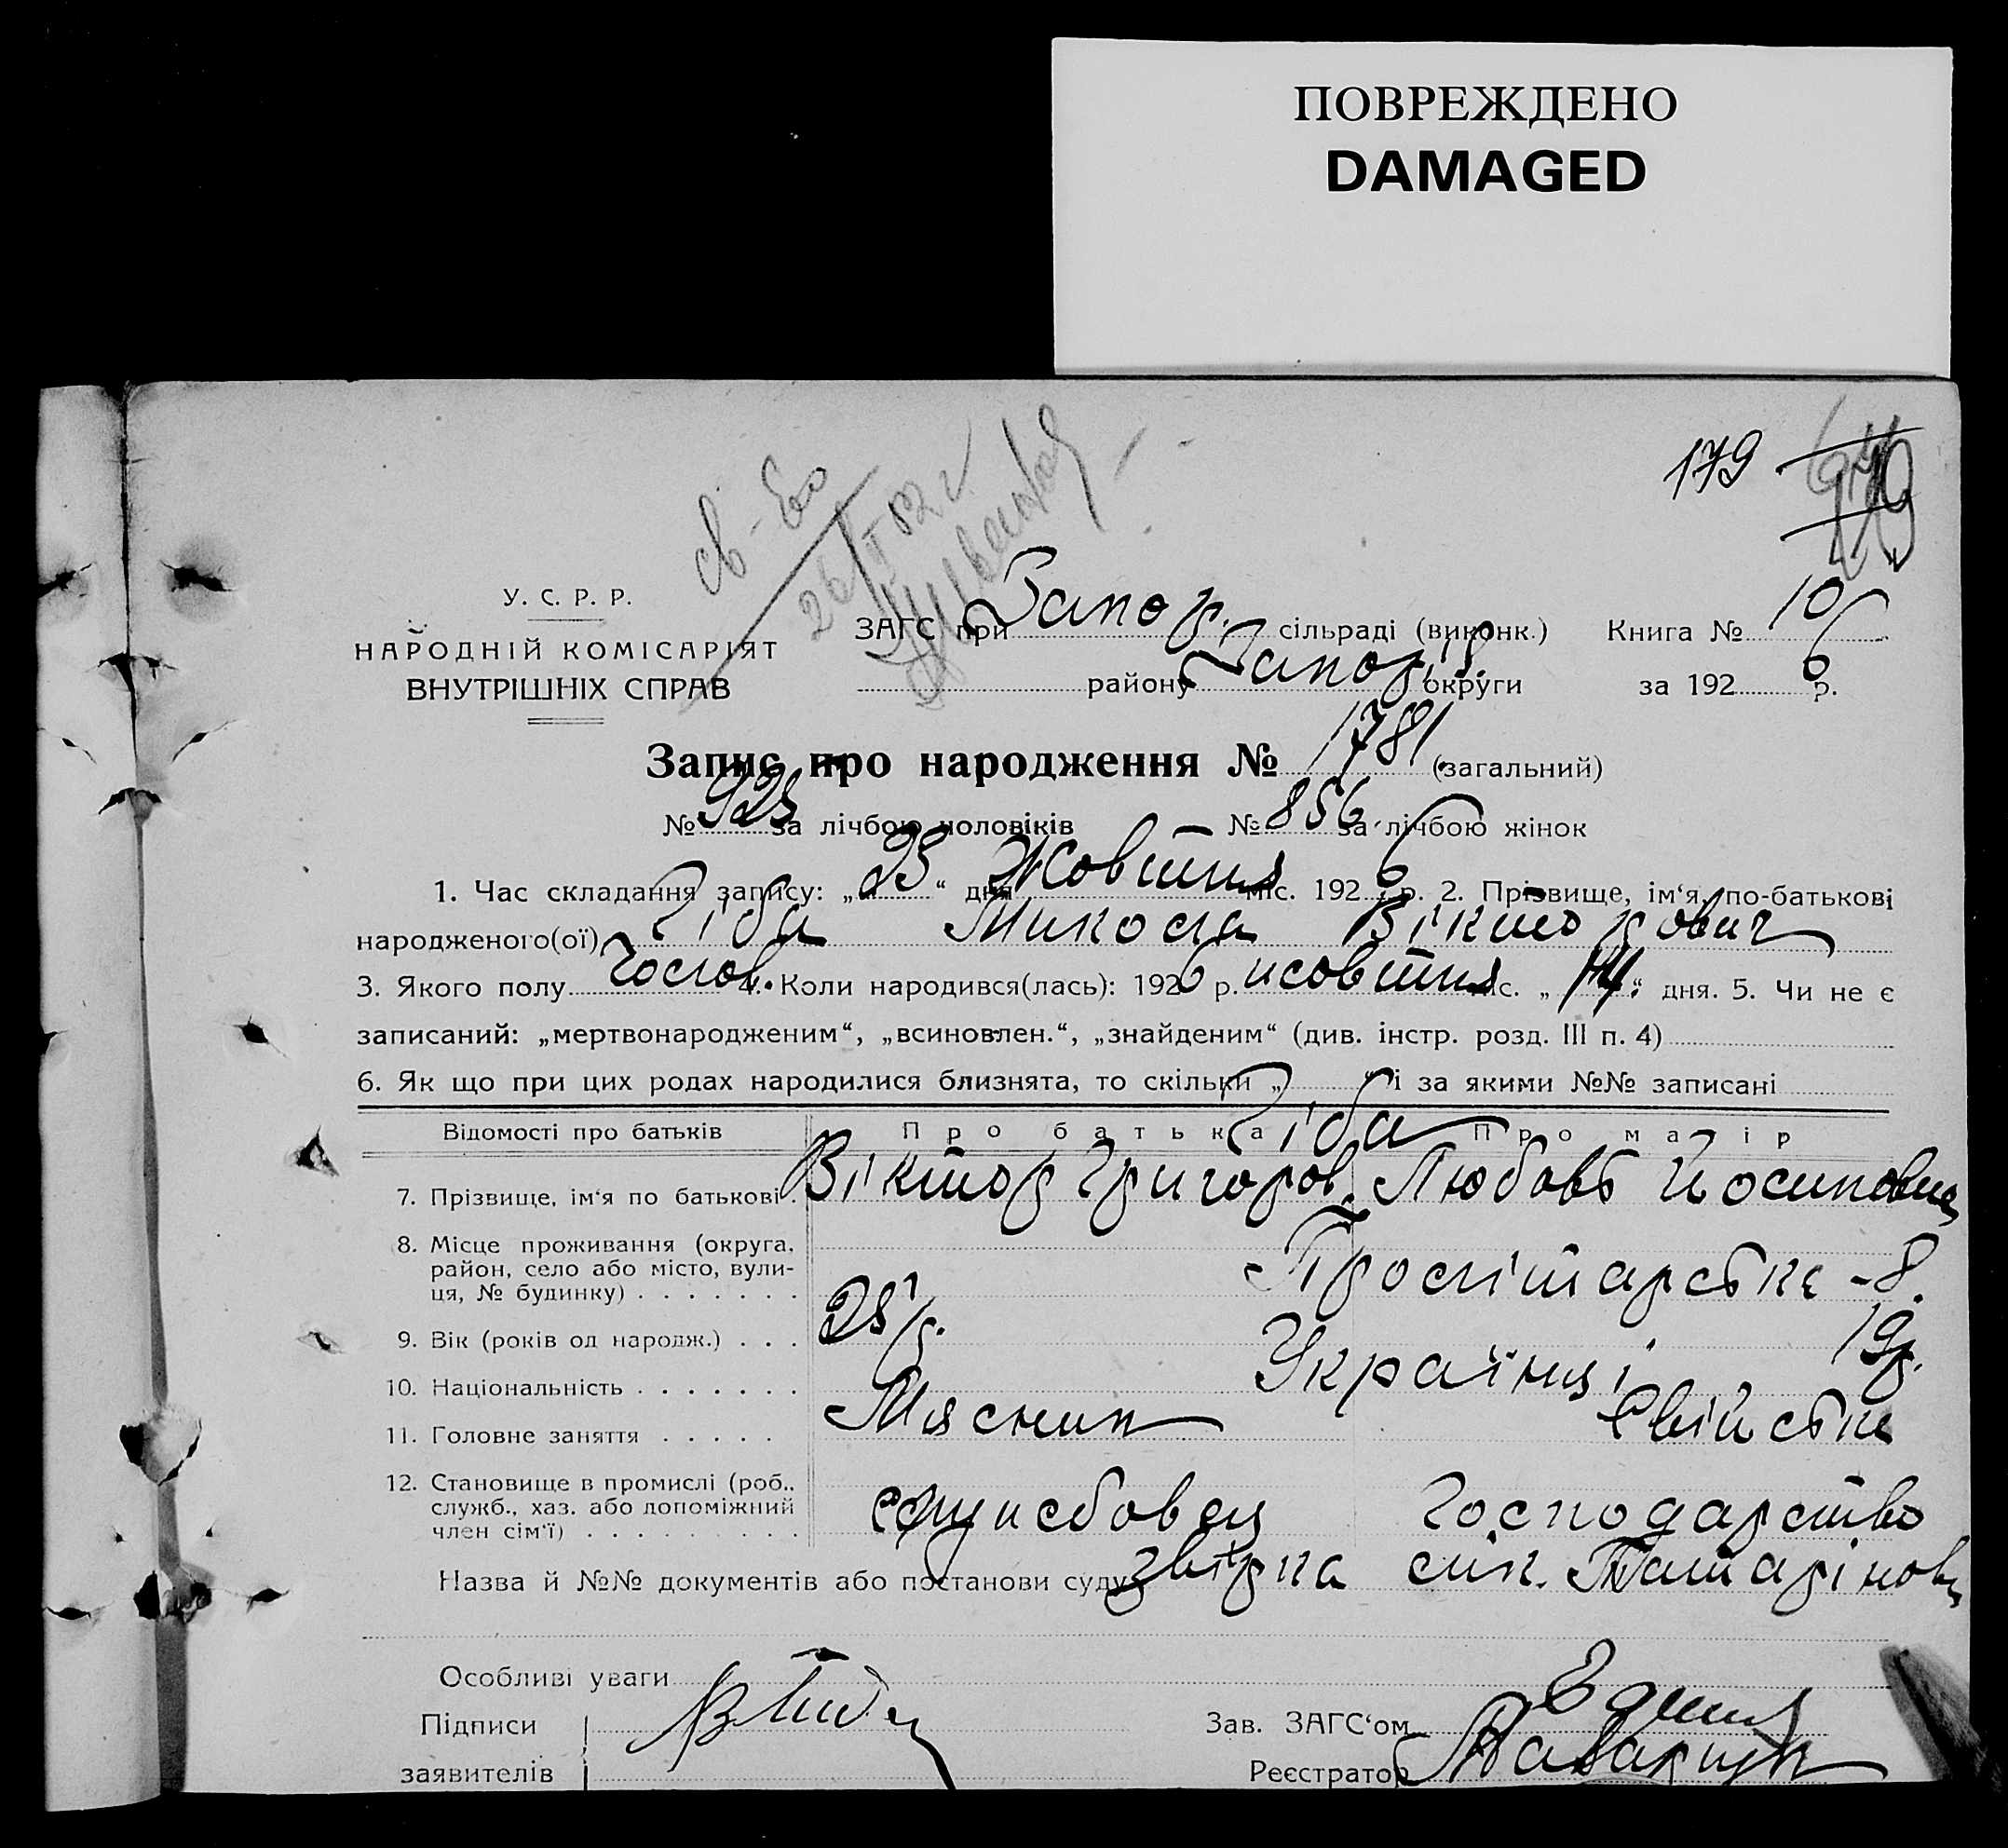 ПОВРЕЖДЕНО
DAMAGED
179
св-во
У. С. Р. Р.
НАРОДНІЙ КОМІСАРІЯТ
ВНУТРІШНІХ СПРАВ
ЗАГС при Запор. сільраді (виконк.) Книга № 10
району Запоріз. округи за 1926 р.
Запис про народження № 1781 (загальний)
№ 925 за лічбою чоловіків № 856 за лічбою жінок
1. Час складання запису: „23“ дня Жовтня міс. 1926 р. 2. Прізвище, ім‘я, по-батькові
народженого(ої) Гіба Микола Вікторович
3. Якого полу чолов. 4. Коли народився(лась): 1926 р. жовтня міс. „14“ дня. 5. Чи не є
записаний: „мертвонародженим“, „всиновлен.“, „знайденим“ (див. інстр. розд. III п. 4)
6. Як що при цих родах народилися близнята, то скільки „ “ і за якими №№ записані
Відомості про батьків Про батька Про матір
Гіба
7. Прізвище, ім‘я по батькові . Віктор Григоров. Любовь Йосиповна
8. Місце проживання (округа, район, село або місто, вулиця, № будинку) . . . . . . . Пролітарське - 8.
9. Вік (років од народж.) . . . 25 р. 19 р.
10. Національність . . . . . . . Українці
11. Головне заняття . . . . . Мясник Свійське
12. Становище в промислі (роб., служб., хаз. або допоміжний член сім‘ї) . . . . . . . . . службовец господарство
Назва й №№ документів або постанови суду звірка
Особливі уваги
Підписи
заявителів
Зав. ЗАГС‘ом
Реєстратор